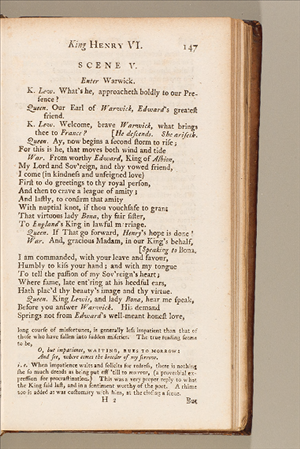 King HENRY VI. 147
SCENE V.
Enter Warwick.
K. Lew. What's he, approacheth boldly to our Pre-
sence?
Queen. Our Earl of Warwick, Edward's greatest
friend.
K. Lew. Welcome, brave Warwick, what brings
thee to France? [He descends. She ariseth.
Queen. Ay, now begins a second storm to rise;
For this is he, that moves both wind and tide
War. From worthy Edward, King of Albion,
My Lord and Sov'reign, and thy vowed friend,
I come (in kindness and unfeigned love)
First to do greetings to thy royal person,
And then to crave a league of amity;
And lastly, to confirm that amity
With nuptial knot, if thou vouchsafe to grant
That virtuous lady Bona, thy fair sister,
To England's King in lawful marriage.
Queen. If That go forward, Henry's hope is done!
War. And, gracious Madam, in our King's behalf,
[Speaking to Bona.
I am commanded, with your leave and favour,
Humbly to kiss your hand; and with my tongue
To tell the passion of my Sov'reign's heart;
Where fame, late ent'ring at his heedful ears,
Hath plac'd thy beauty's image and thy virtue.
Queen. King Lewis, and lady Bona, hear me speak,
Before you answer Warwick. His demand
Springs not from Edward's well-meant honest love,
long course of misfortunes, is generally less impatient than that of
those who have fallen into sudden miseries. The true reading seems
to be,
O, but impatience, WAITING, RUES TO MORROW;
And see, where comes the breeder of my sorrow.
i. e. When impatience waits and sollicits for redress, there is nothing
she so much dreads as being put off 'till to morrow, (a proverbial ex-
pression for procrastination.) This was a very proper reply to what
the King said last, and in a sentiment worthy of the poet. A rhime
too is added as was customary with him, at the closing a scene.
H 2 But